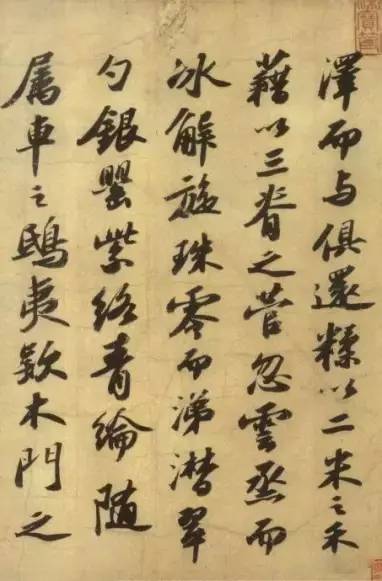 澤而与俱還糅以二米之禾
藉以三脊之菅忽雲烝而
冰解旋珠零而涕潸翠
勺銀罌紫絡青綸随
属車之鴟夷款木門之